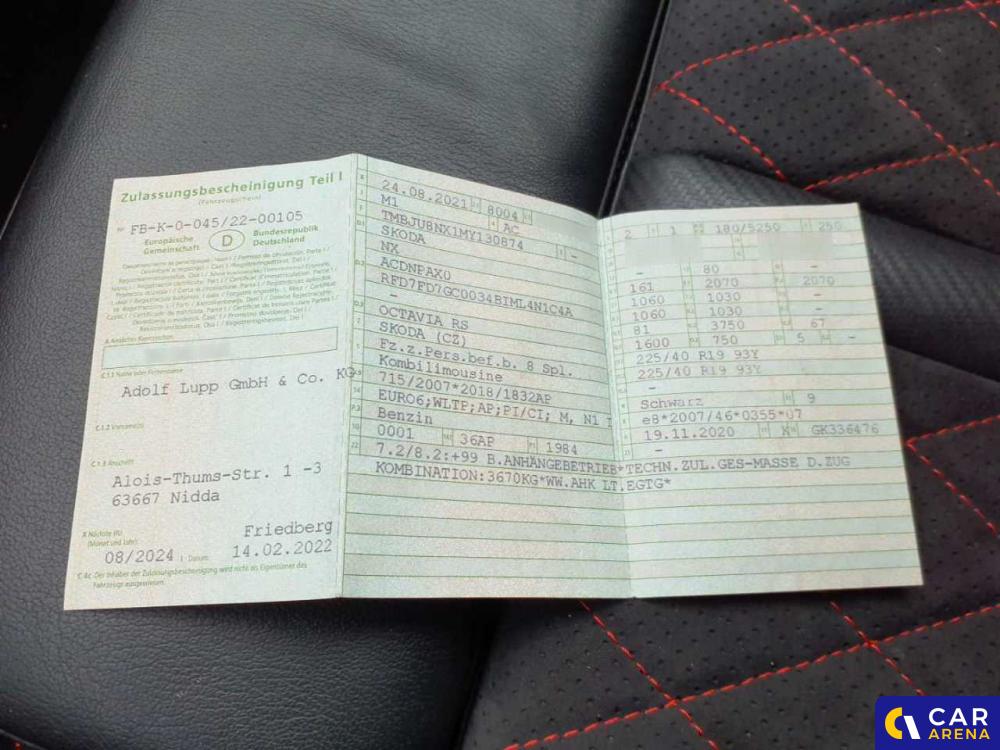 Zulassungsbescheinigung Teil I
(Fahrzeugschein)
Nr. FB-K-0-045/22-00105
Europäische Gemeinschaft D Bundesrepublik Deutschland
A Amtliches Kennzeichen
C.1.1 Name oder Firmenname
Adolf Lupp GmbH & Co. KG
C.1.2 Vorname(n)
C.1.3 Anschrift
Alois-Thums-Str. 1 -3
63667 Nidda
X Nächste HU
(Monat und Jahr)
Friedberg
08/2024 I Datum: 14.02.2022
C 4c -Der Inhaber der Zulassungsbescheinigung wird nicht als Eigentümer des
Fahrzeugs ausgewiesen.
24.08.2021 8004
M1 AC
TMBJU8NX1MY130874 -
SKODA
NX
ACDNPAX0
RFD7FD7GC0034BIML4N1C4A
-
OCTAVIA RS
SKODA (CZ)
Fz.z.Pers.bef.b. 8 Spl.
Kombilimousine
715/2007*2018/1832AP
EURO6;WLTP;AP;PI/CI; M, N1 I
Benzin
0001 36AP 1984
2 1 180/5250 250
- 80 -
161 2070 2070
1060 1030 -
1060 1030 -
81 3750 67
1600 750 5 -
225/40 R19 93Y
225/40 R19 93Y
-
Schwarz 9
e8*2007/46*0355*07
19.11.2020 K GK336476
-
22 7.2/8.2:+99 B.ANHÄNGEBETRIEB*TECHN.ZUL.GES-MASSE D.ZUG
KOMBINATION:3670KG*WW.AHK LT.EGTG*
CAR
ARENA